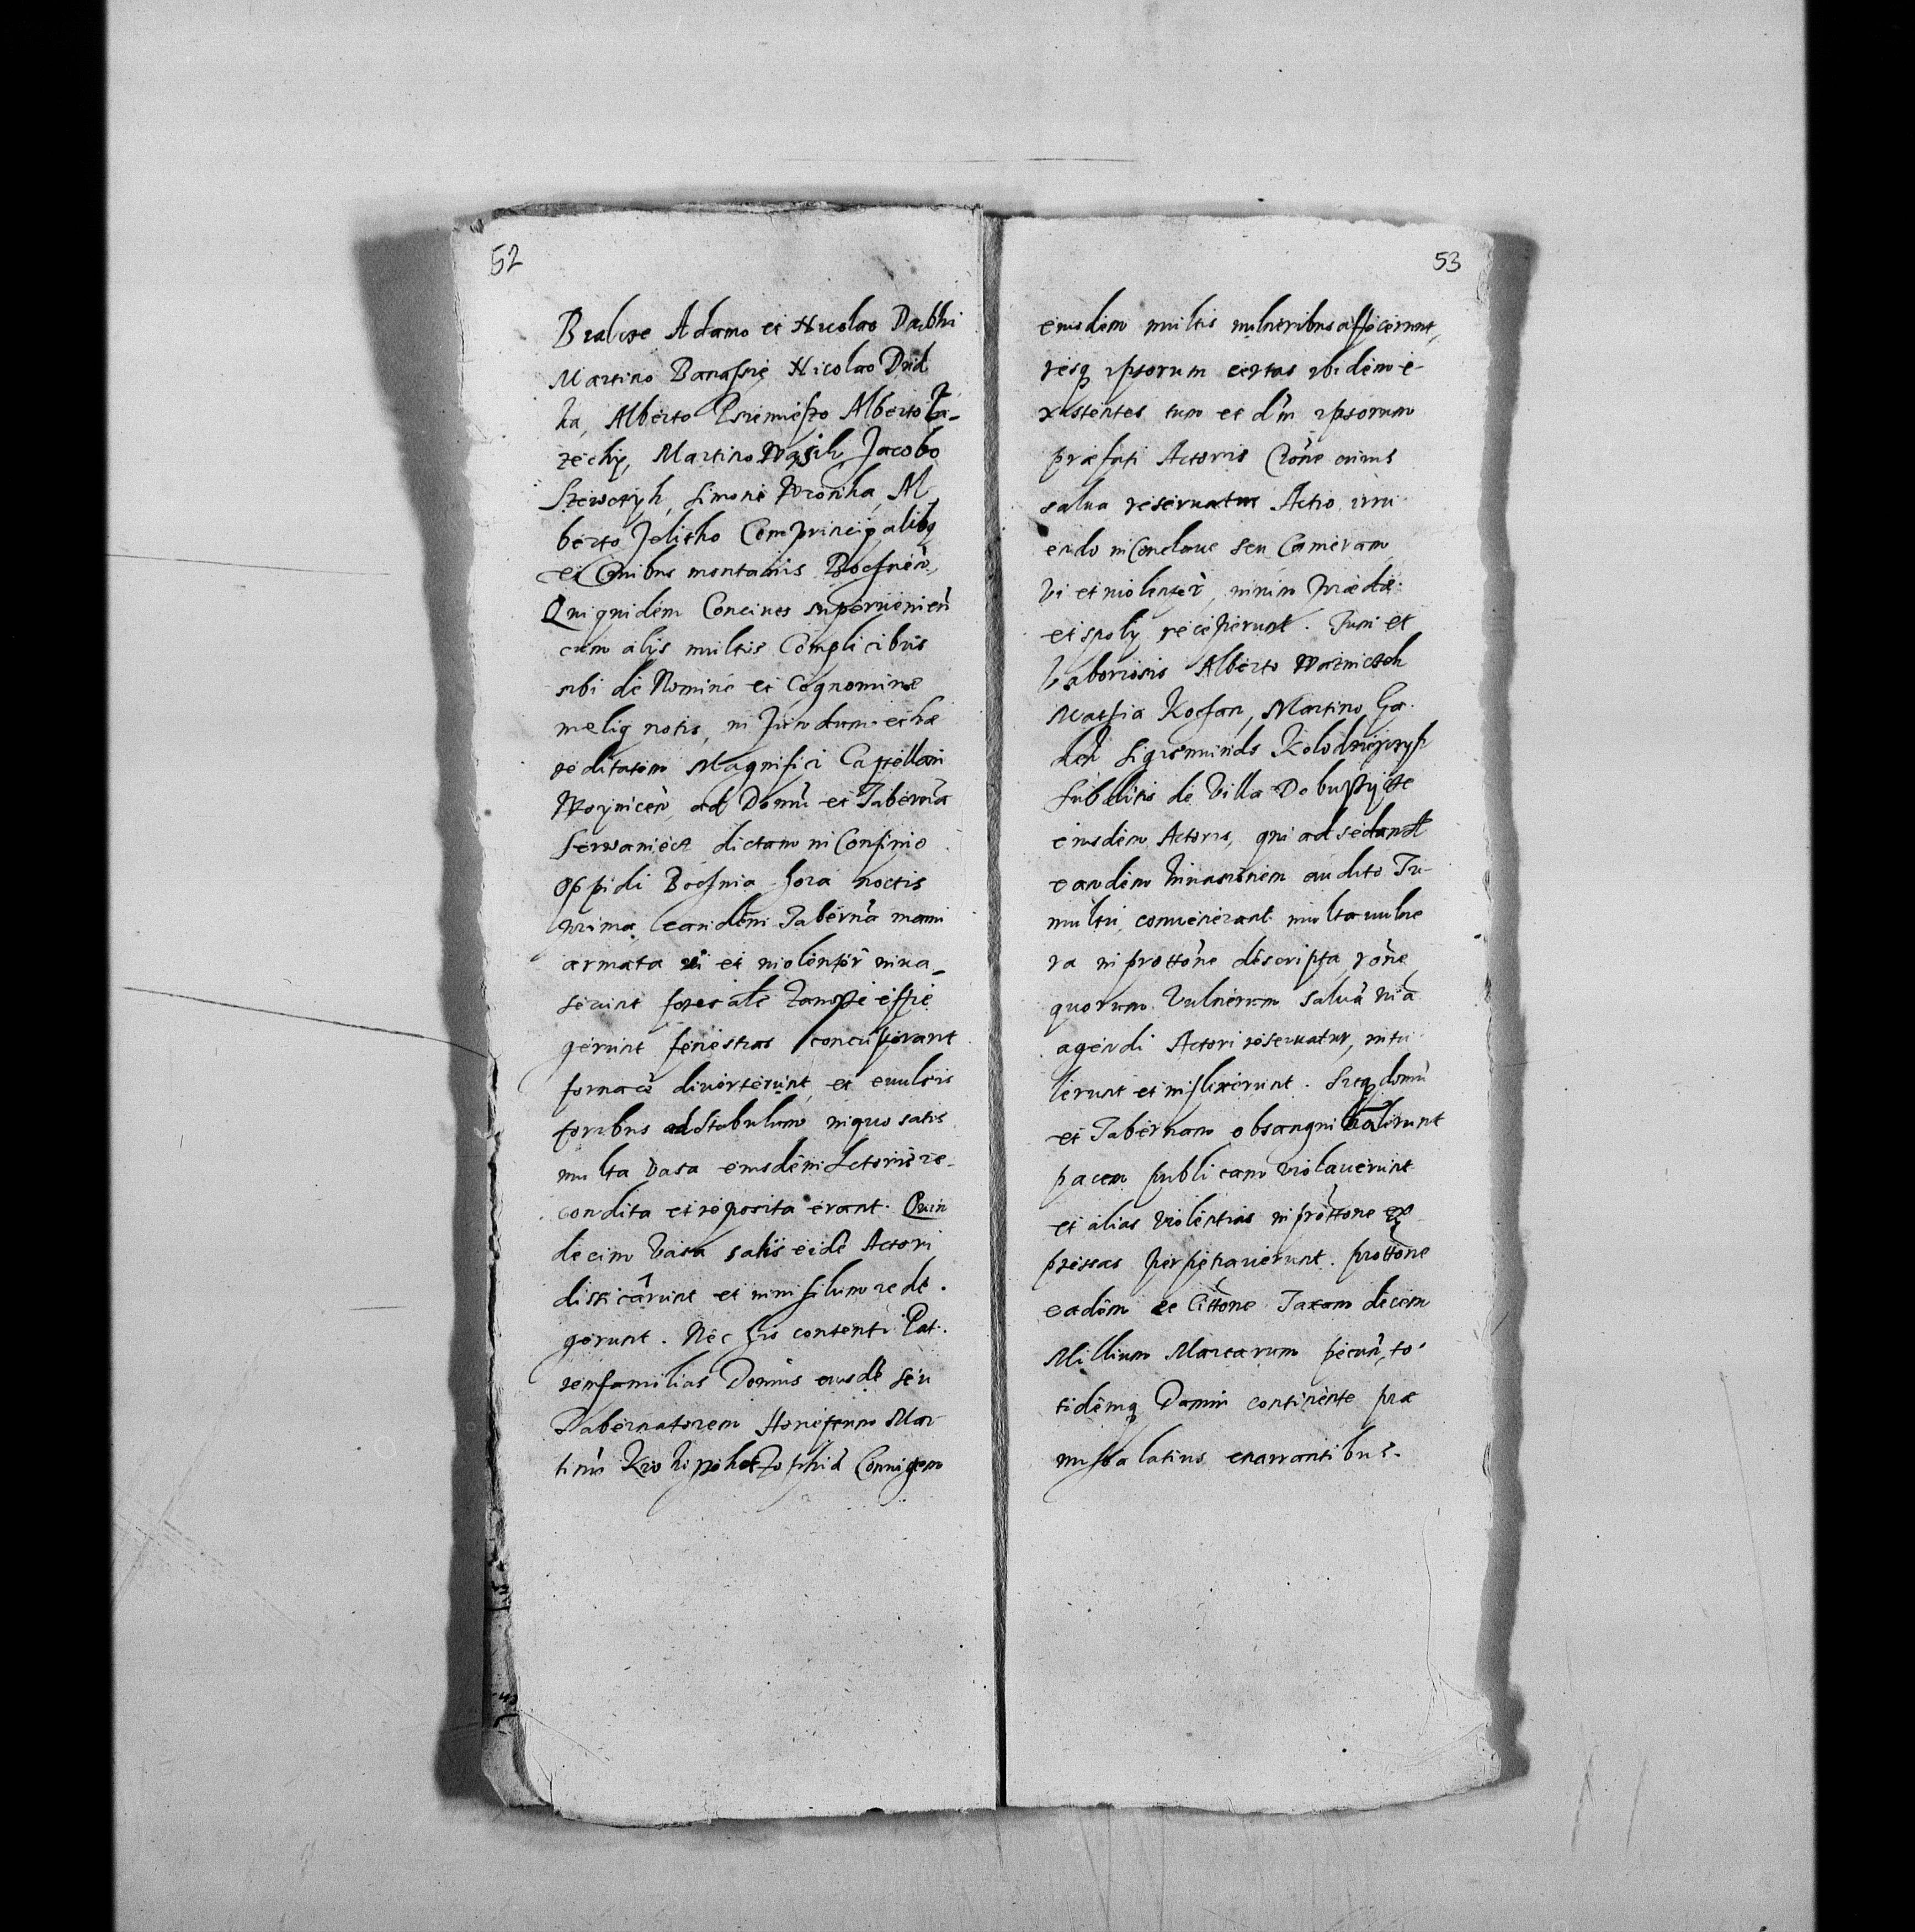 52
Bralcze Adamo et Nicolao Dabhi
Martino Banassie Nicolao Drid
ka, Alberto Alberto La-
zechy, Martino Wasik, Jacobo
Szewczyk, Simone Wronka, Al
berto Jelitko Comprincipalibq
et Cõnibus montanis Bochneñ,
Qui quidem Conciues superuenieñ
cum alijs multis Complicibus
sibi de Nomine et Cognomine
melig notis, in fundum et hæ
reditatem Magnifici Castellani
Woyniceñ, ad Domũ et Tabernã
dictam in Confinio
Oppidi Bochnia hora noctis
prima, eandem Tabernã manu
armata vi et violenter inua-
serunt fores alẽ effre
gerunt fenestras concusserant
fornacẽ diuerterunt, et euulsis
foribus ad stabulum in quo salis
multa vasa eiusdem Actoris re-
condita et reposita erant. Quin
decim vasa salis eidẽ Actori
et in nihilum rede-
gerunt. Nec his contenti Pat-
remfamilias Domus eiusdẽ seu
Tabernatorem Honestum Mar
tinũ Zophiã Coniugem
53
eiusdem multis vulneribus affecerunt,
resq ipsorum certas ibidem e-
xistentes tum et dm ipsorum
præfati Actoris Rõne cuius
salua reseruatur Actio irru
endo in Conclaue seu Cameram
vi et violenter, in vim prædæ
et spolij receperunt. Tum et
Laboriosis Alberto
Mathia Kochan, Martino Ga-
Sigismundo Kolodzieyczyk
Subditis de Villa
eiusdem Actoris, qui ad sedandã
eandem inuasionem audito Tu-
multu conuenerant multa vulne
ra in prottõne descripta, rõne
quorum Vulnerum saluã viã
agendi Actori reseruatur, intu
lerunt et inflixerunt. Sicq domũ
et Tabernam
pacem publicam violauerunt
et alias violentias in prottone ex-
pressas perpetrauerunt. prottõne
eadem et Cittõne Taxam decem
Millium Marcarum pecuñ, to-
tidemq Damni continente præ
missa latius enarrantibus.